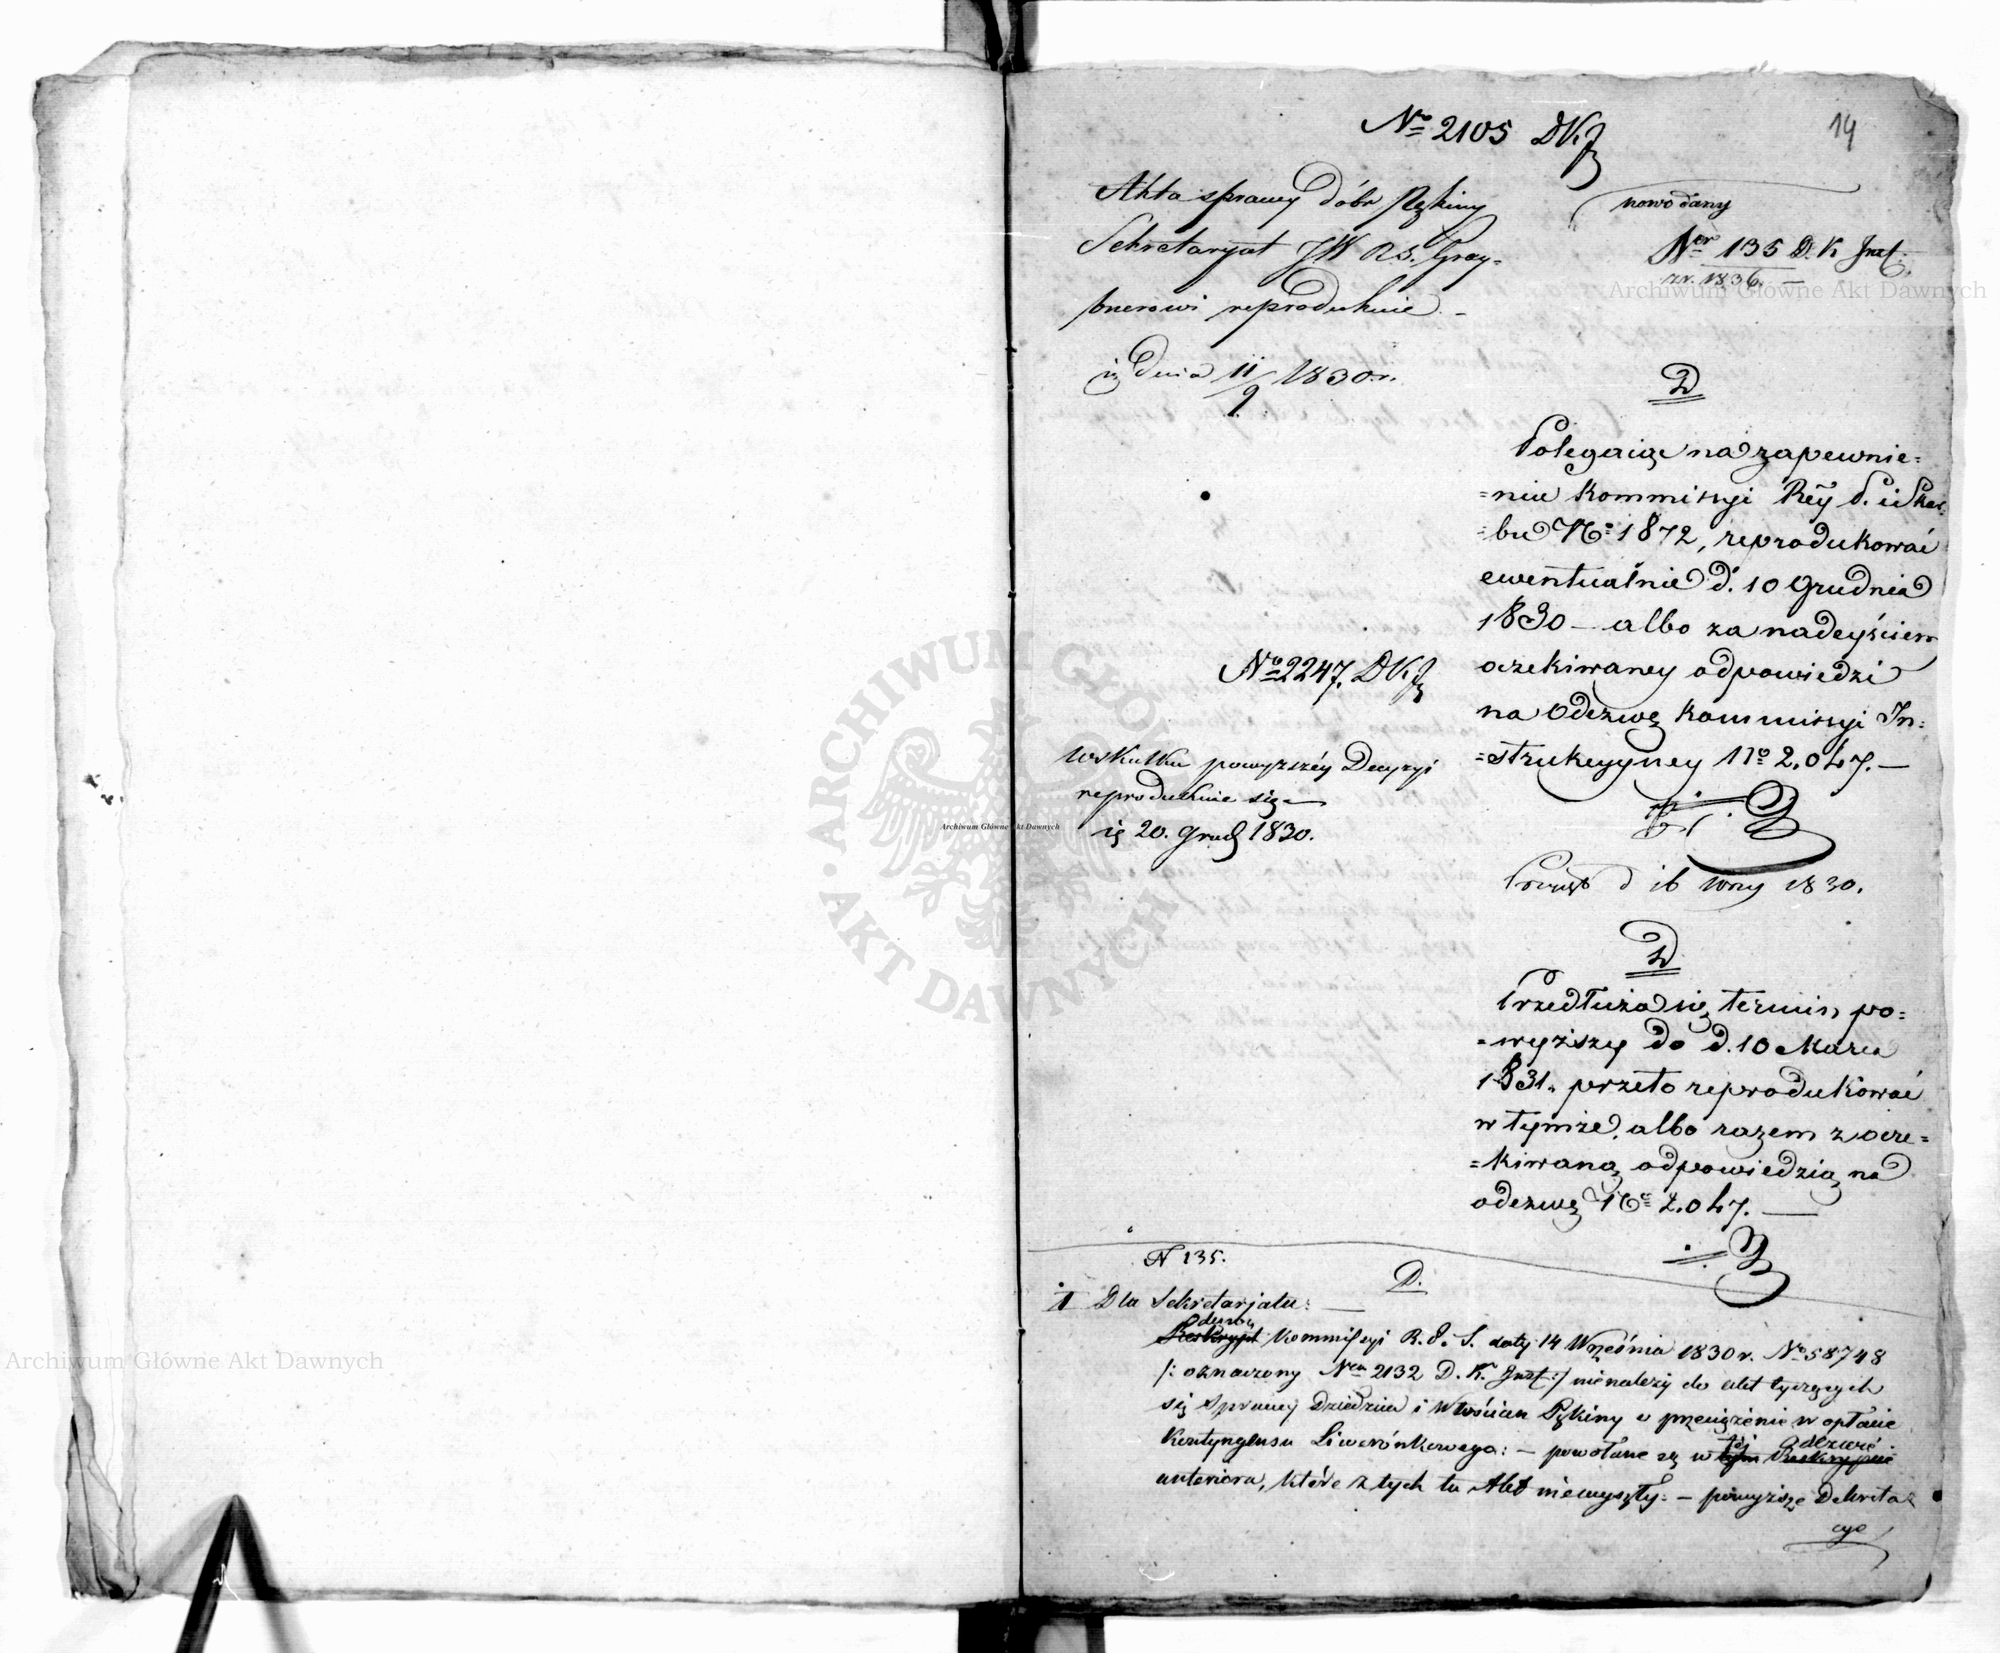 14
No 2105 DKJ
Akta sprawy dóbr Pękiny
Sekretaryat JW Rs. Gray=
bnerowi reprodukuie. –
d. dnia 11/9 1830. r.
nowo dany
Ner 135 D. K Inst.
z r. 1836. –
D
Polegaiąc na zapewnie=
=niu Kommissyi Rey P. i Skar=
=bu No 1872, reprodukować
ewentualnie d. 10 Grudnia
1830 – albo za nadeyściem
oczekiwaney odpowiedzi
na Odezwę Kommissyi In=
=strukcyyney No 2.047. –
No 2247. DKJ
Wskutku powyższéy Decyzyi
reprodukuie się –
20. Grud 1830.
d 16 1830.
D
Przedłuża się termin po=
=wyższy do d. 10 Marca
1831. przeto reprodukować
w tymże, albo razem z ocze=
=kiwaną odpowiedzią na
odezwę No 2.047. —
N 135.
D.
1 Dla Sekretarjatu: —
Odezwa
Reskrypt Kommissyi R. P. S. daty 14 Września 1830 r. No 58748
/: oznaczony Nem 2132 D. K. Inst:/ nienależy do akt tyczących
się Sprawy Dziedzica i Włościan Pękiny o przeciążenie w opłacie
Kontyngensu Liwerunkowego: – powołane są w tym Reskrypcie
téj Odezwie
anteriora, które z tych tu Akt niewyszły: – powyższe Dekreta=
cye
Archiwum Główne Akt Dawnych
Archiwum Główne Akt Dawnych
Archiwum Główne Akt Dawnych
· ARCHIWUM GŁÓWNE · AKT DAWNYCH